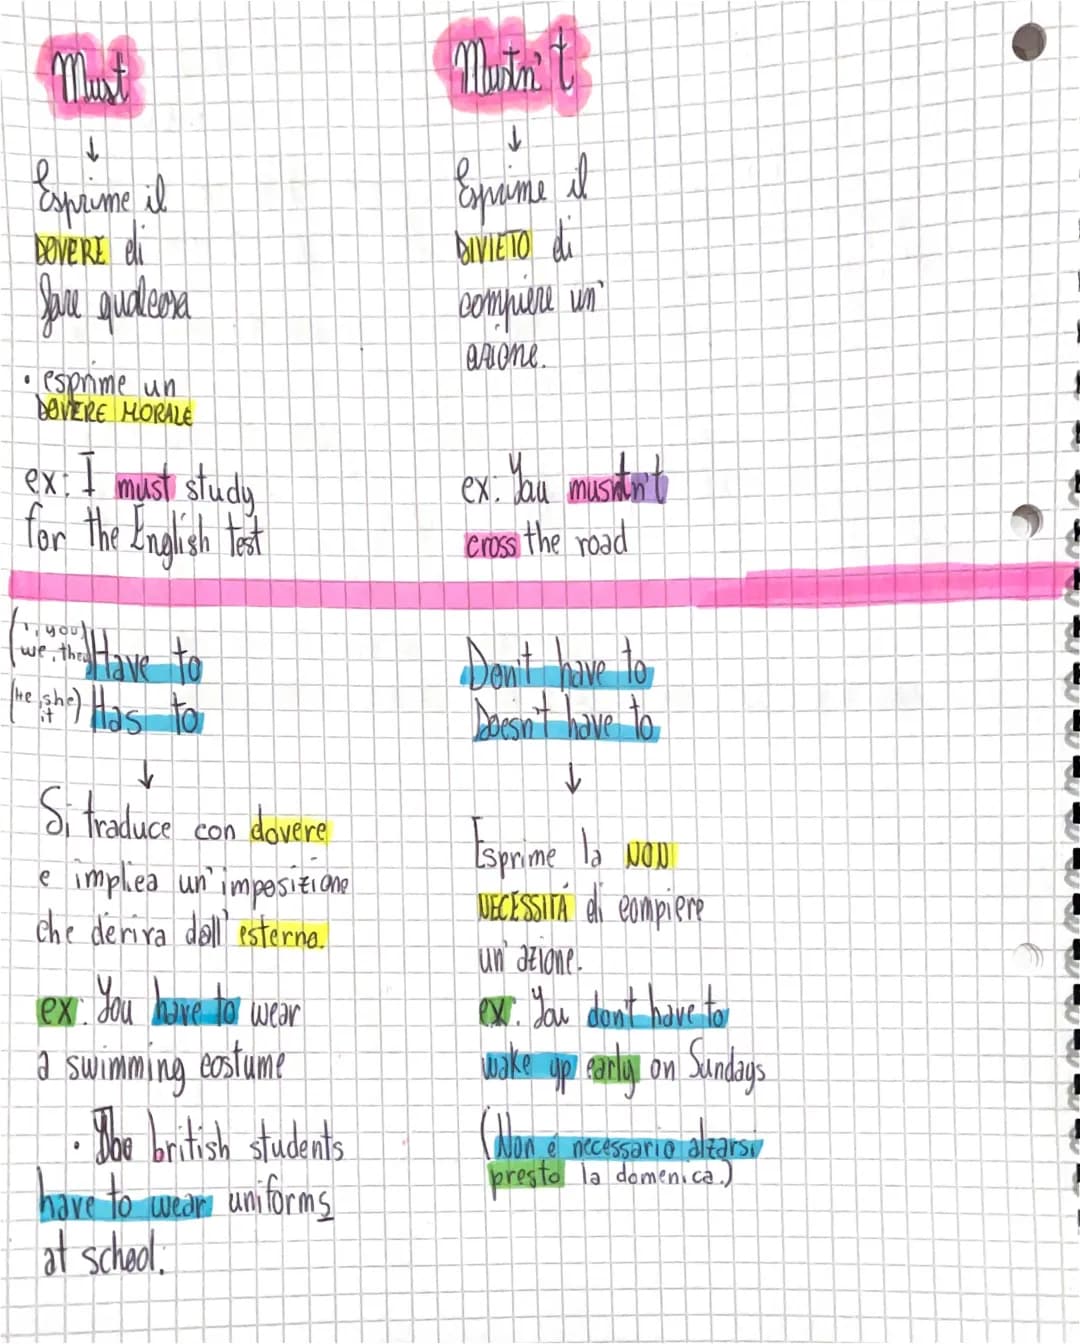 Must
↓
Esprime il
DOVERE di
fare qualcosa
• esprime un
DOVERE MORALE
ex: I must study
for the English test
Mustn't
↓
Esprime il
DIVIETO di
compiere un'
azione.
ex: You mustn't
cross the road
(I, you
we, they) Have to
(He, she
it) Has to
↓
Si traduce con dovere
e implica un'imposizione
che deriva dall'esterno.
ex: You have to wear
a swimming costume
• The british students
have to wear uniforms
at school.
Don't have to
Doesn't have to
↓
Esprime la NON
NECESSITÁ di compiere
un'azione.
ex: You don't have to
wake up early on Sundays
(Non é necessario alzarsi
presto la domenica.)